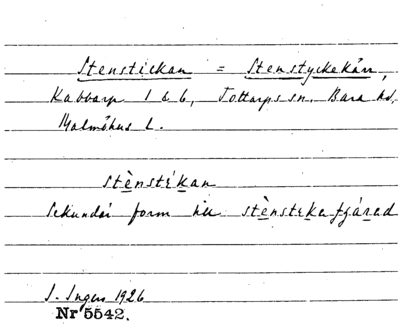 Stenstickan = Stenstyckekärr,
Kabbarp 1 & 6, Tottarps sn. Bara hd.
Malmöhus L.
stènsté̱ḵan
Sekundär form till stènsteḵafjáṟad
I. Ingers 1926
Nr 5542.